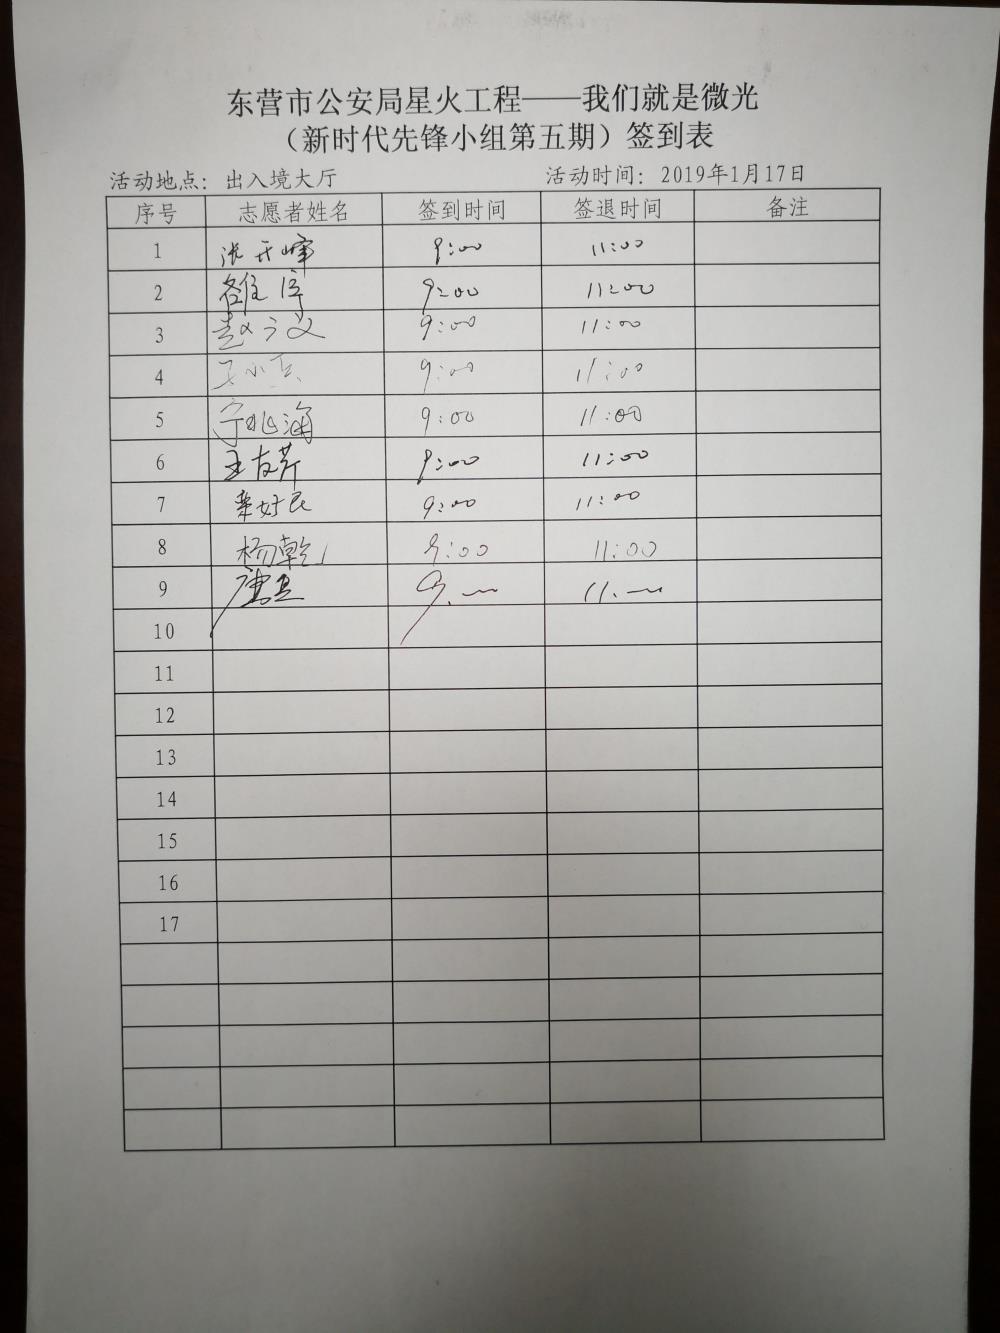 东营市公安局星火工程——我们就是微光
（新时代先锋小组第五期）签到表
活动地点：出入境大厅 活动时间：2019年1月17日
序号 志愿者姓名 签到时间 签退时间 备注
1 9:00 11:00
2 9:00 11:00
3 赵 义 9:00 11:00
4 王小兵 9:00 11:00
5 宁兆海 9:00 11:00
6 王友芹 9:00 11:00
7 9:00 11:00
8 杨乾 9:00 11:00
9 9:00 11:00
10
11
12
13
14
15
16
17